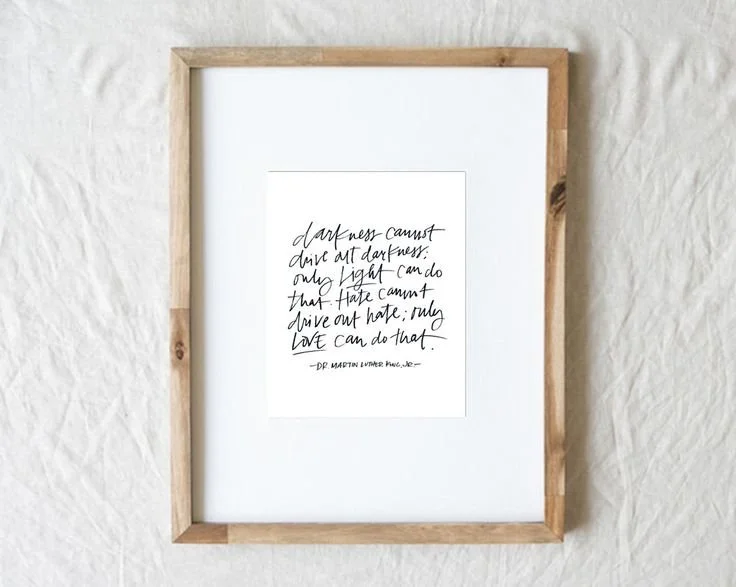 darkness cannot
drive out darkness:
only Light can do
that. Hate cannot
drive out hate; only
LOVE can do that.
—DR. MARTIN LUTHER KING, JR.—